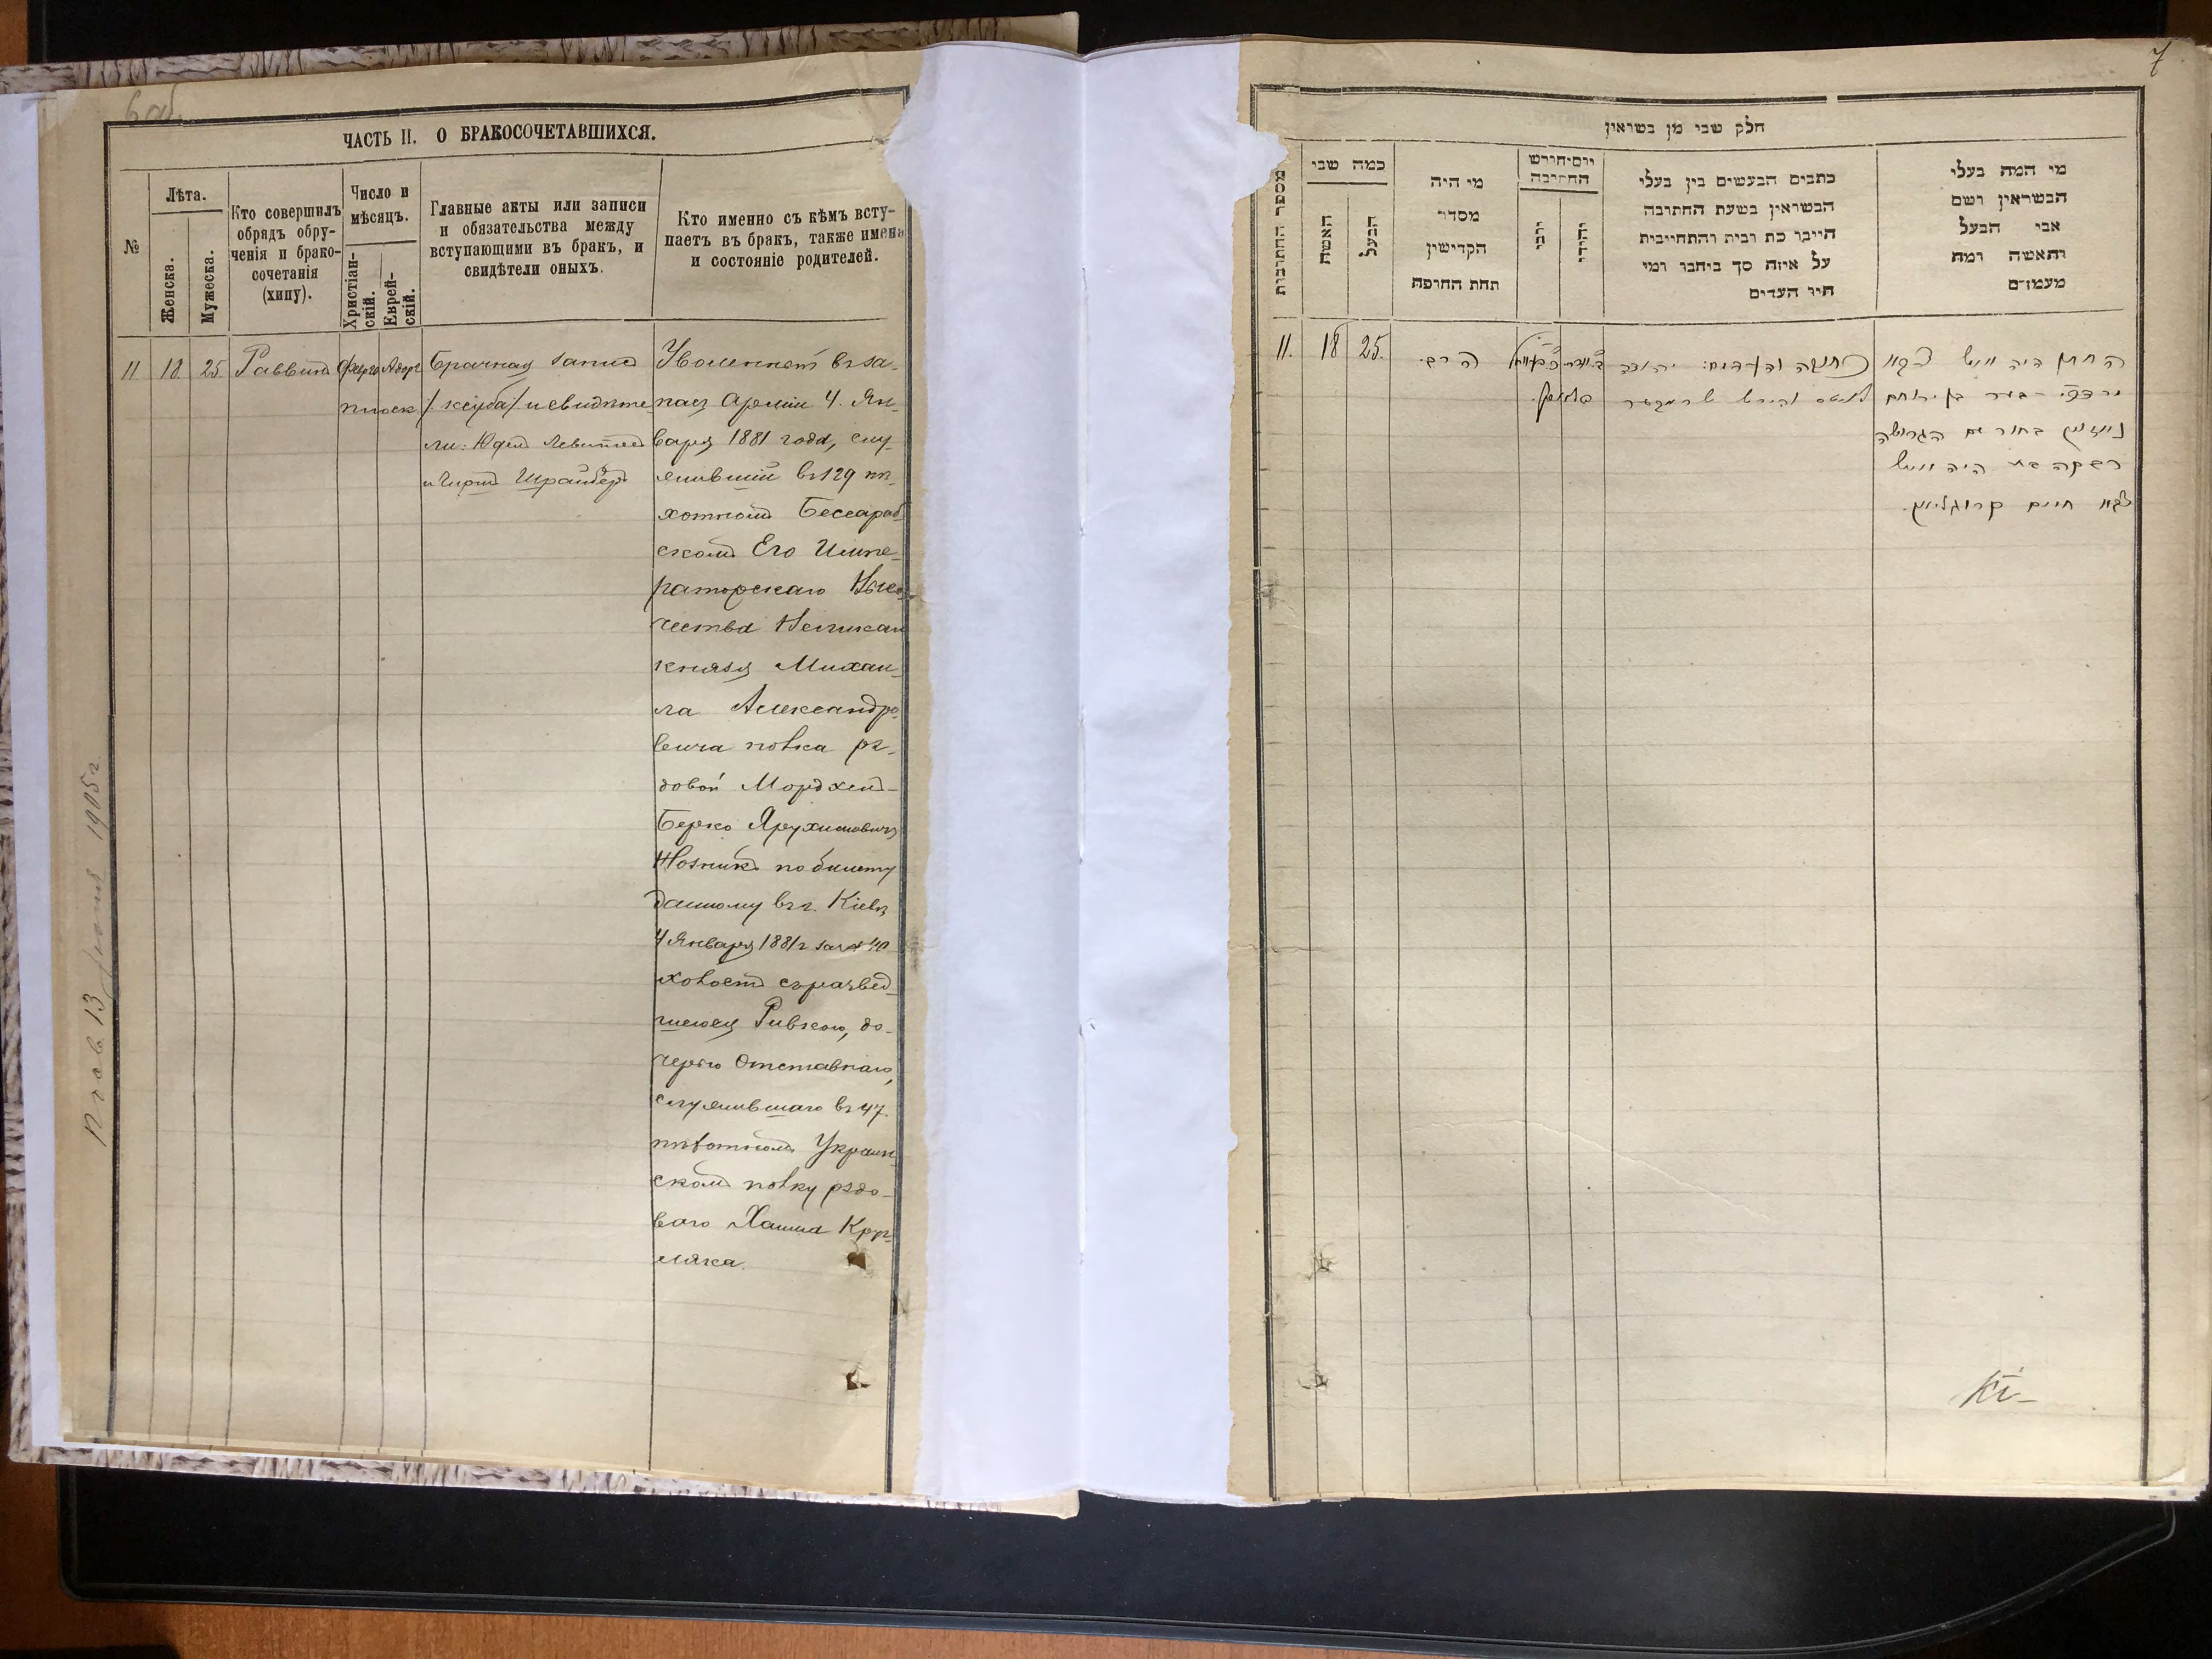 6 об.
ЧАСТЬ II. О БРАКОСОЧЕТАВШИХСЯ.
№
Лѣта.
Женска.
Мужеска.
Кто совершилъ
обрядъ обру-
ченія и брако-
сочетанія
(хипу).
Число и
мѣсяцъ.
Христіан-
скій.
Еврей-
скій.
Главные акты или записи
и обязательства между
вступающими въ бракъ, и
свидѣтели оныхъ.
Кто именно съ кѣмъ всту-
паетъ въ бракъ, также имена
и состояніе родителей.
11
18.
25.
Раввинъ
Брачная запись
/ кецуба / и свидѣте
ли: Юдель Левитес
и Гиршъ Шрайберъ
Уволенный въ за-
пасъ Арміи 4. Ян-
варя 1881 года, слу-
жившій въ 129 пѣ-
хотномъ Бессараб-
скомъ Его Импе-
раторскаго Высо-
чества Великаго
князя Михаи-
ла Александро-
вича полка ря-
довой Мордхель-
Берко Ярухимовичъ
Нозникъ по билету
данному въ г. Кіевѣ
4 Января 1881 г за № 40
холостъ съ развед-
шеюся Ривкою, до-
черью Отставнаго,
служившаго въ 47.
пѣхотномъ Украин-
скомъ полку рядо-
ваго Хаима Круг-
ляка.
1905 г.
7
חלק שני מן נשואין
מספר החתונות
כמה שני
האשה
הבעל
מי היה
מסדר
הקדישין
תחת החופה
יום וחודש
החתונה
כתבים הנעשים בין בעלי
הנשואין בשעת החתונה
היינו כת ובית והתחייבות
על איזה סך ביחבר ומי
היו העדים
מי המה בעלי
הנשואין ושם
אבי הבעל
והאשה ומה
מעמדם
11.
18
25.
הרב.
כתובה והעדים: יהודה
לוויטס והירש שרייבער
החתן היה
מרדכי בער בן ירוחם
נאזניק בחור עם הגרושה
רבקה בת היה
חיים קרוגליאק.